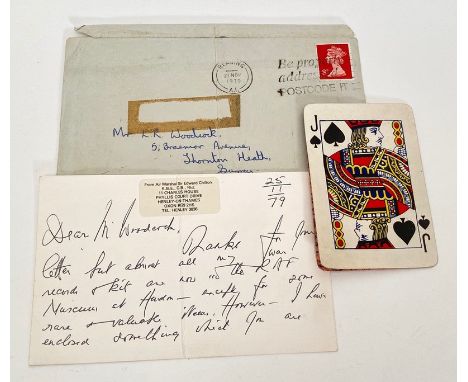 READING
27 NOV
1979
Be pro
addre
POSTCODE IT
Mr K.R. Woodcock,
5, Braemar Avenue,
Thornton Heath,
Surrey
J
J
From Air Marshal Sir Edward Chilton
K.B.E., C.B., RN
11 CHARLES HOUSE
PHYLLIS COURT DRIVE
HENLEY-ON-THAMES
OXON
TEL HENLEY
25
11
79
Dear Mr Woodcock,
Thanks for your
letter but almost all my war
records & kit are now in the RAF
Museum at Hendon — except for some
rare & valuable items. However — I have
enclosed something which you are